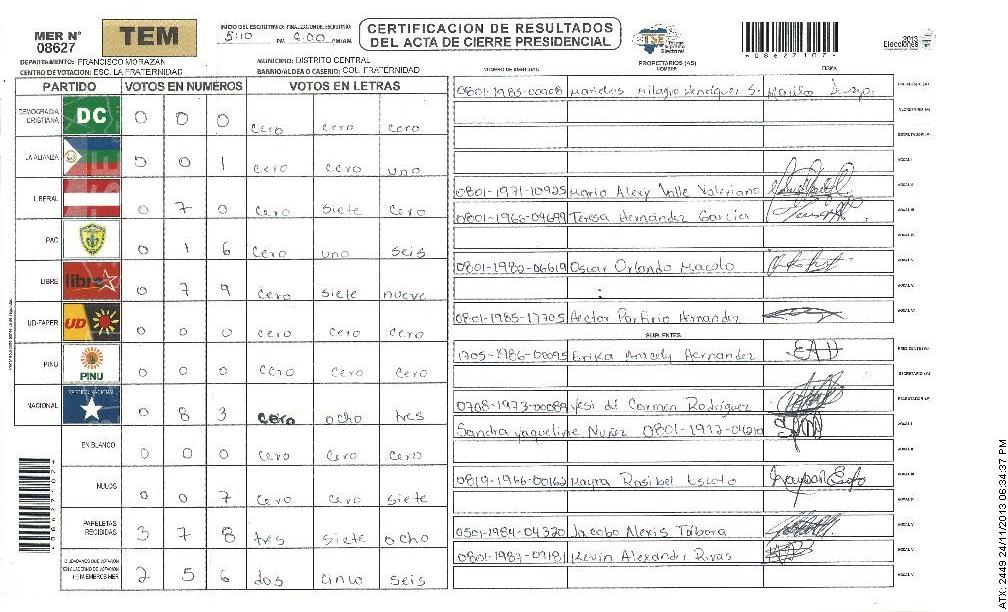 MER N° 08627
TEM
INICIO DEL ESCRUTINIO: FINALIZACION DEL ESCRUTINIO:
5:10 PM 6:00 PM/AM
CERTIFICACION DE RESULTADOS
DEL ACTA DE CIERRE PRESIDENCIAL
TSE
Tribunal Supremo Electoral
2013
Elecciones
DEPARTAMENTO: FRANCISCO MORAZAN
MUNICIPIO: DISTRITO CENTRAL
CENTRO DE VOTACION: ESC. LA FRATERNIDAD
BARRIO/ALDEA O CASERIO: COL. FRATERNIDAD
PROPIETARIOS (AS)
NUMERO DE IDENTIDAD NOMBRE FIRMA
PARTIDO VOTOS EN NUMEROS VOTOS EN LETRAS
DEMOCRACIA CRISTIANA DC 0 0 0 cero cero cero
LA ALIANZA 0 0 1 cero cero uno
LIBERAL 0 7 0 cero siete cero
PAC 0 1 6 cero uno seis
LIBRE libre 0 7 9 cero siete nueve
UD-FAPER UD 0 0 0 cero cero cero
PINU PINU 0 0 0 cero cero cero
NACIONAL PARTIDO NACIONAL 0 8 3 cero ocho tres
EN BLANCO 0 0 0 cero cero cero
NULOS 0 0 7 cero cero siete
PAPELETAS RECIBIDAS 3 7 8 tres siete ocho
CIUDADANOS QUE VOTARON EN CUADERNO DE VOTACION (+) MIEMBROS MER 2 5 6 dos cinco seis
0801-1985-00908 Milagro Henriquez S. PRESIDENTE (A)
SECRETARIO (A)
ESCRUTADOR (A)
VOCAL I
0801-1971-10925 Mario Alexy Valle Valeriano VOCAL II
0801-1966-04699 Teresa Hernández García VOCAL III
VOCAL IV
0801-1982-06619 Oscar Orlando VOCAL V
VOCAL V
0801-1985-17705 Hector Porfirio Hernandez VOCAL VI
SUPLENTES
1705-1986-00095 Erika Aracely Hernandez EAH PRESIDENTE (A)
SECRETARIO (A)
0708-1973-00089 Yesi del Carmen Rodriguez ESCRUTADOR (A)
Sandra Yaqueline Nuñez 0801-1977-04210 VOCAL I
VOCAL II
0819-1966-00162 Mayra Rosibel Escoto VOCAL III
VOCAL IV
0501-1984-04320 Jacobo Alexis Tábora VOCAL V
0801-1987-07181 Kevin Alexander Rivas VOCAL V
VOCAL VI
ATX: 2449 24/11/2013 06:34:37 PM